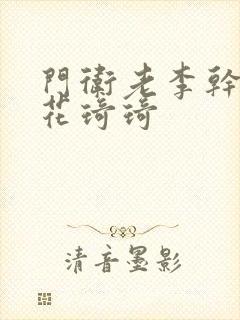 門衛老李幹
花琦琦
清音墨影